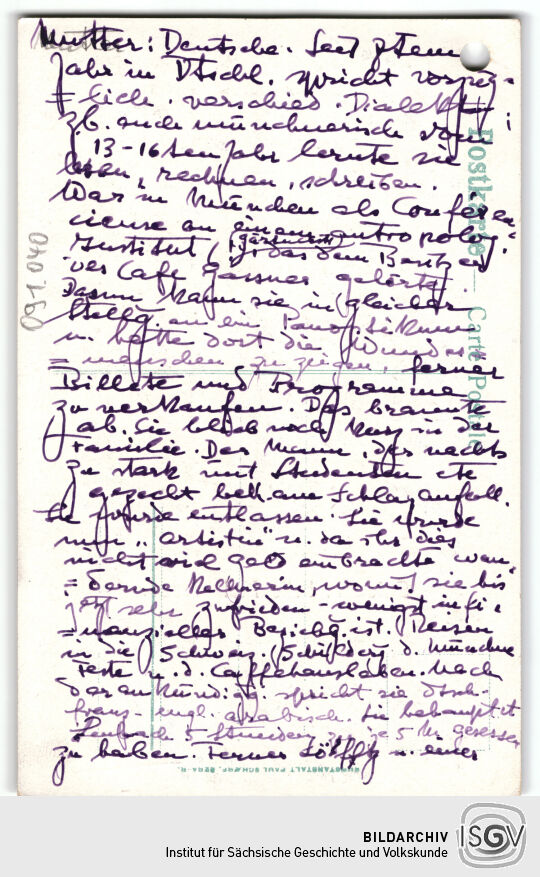 Mutter: Deutsche. Seit 7tem
Jahr in Dtschl. spricht vorzüg=
=lich. verschied. Dialekte,
z.b. auch münchnerisch vom
13-16ten Jahr lernte sie
lesen, rechnen, schreiben.
War in München als Conféren
cieuse an einem antropolog.
Institut, das dem Besitzer
des Café Gassner gehörte
Dann kam sie in gleicher
Stellg. an ein Panoptikum
u. hatte dort die Wunder=
=menschen zu zeigen, ferner
Billete und Programme
zu verkaufen. Das brannte
ab. Sie blieb noch kurz in der
Familie. Der Mann, der nachts
zu stark mit Studenten etc
gezecht bekam Schlaganfall.
Sie wurde entlassen. Sie wurde
nun "artistin" u. da ihr dies
nicht viel geld einbrachte wan=
=dernde Kellnerin, womit sie bis
jetzt sehr zufrieden - wenigst in fi=
=nanzieller Beziehg ist. Reisen
in die Schweiz. (Schilderg d. Münchner
Feste u. d. Caffehauslebens. Nach
der ankündigg. spricht sie dtsch-
franz- engl. arabisch. Sie behauptet
5 Stunden zu je 5 M. gesessen
zu haben. Ferner u. einer
Postkarte — Carte Postale
KUNSTANSTALT PAUL SCHAERF, GERA-R.
091040
BILDARCHIV
Institut für Sächsische Geschichte und Volkskunde
ISGV